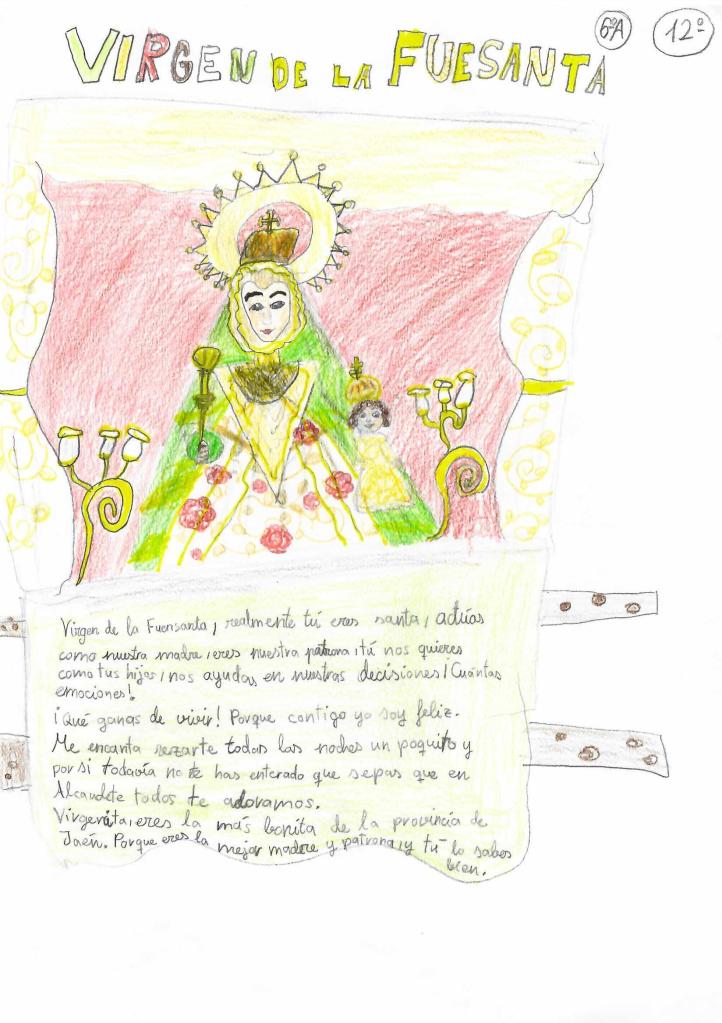 6ºA
12º
VIRGEN DE LA FUESANTA
Virgen de la Fuensanta, realmente tú eres santa, actúas
como nuestra madre, eres nuestra patrona, tú nos quieres
como tus hijos, nos ayudas en nuestras decisiones ¡Cuántas
emociones!
¡Qué ganas de vivir! Porque contigo yo soy feliz.
Me encanta rezarte todas las noches un poquito y
por si todavía no te has enterado que sepas que en
Alcaudete todos te adoramos.
Virgencita, eres la más bonita de la provincia de
Jaén. Porque eres la mejor madre y patrona, y tú lo sabes
bien.